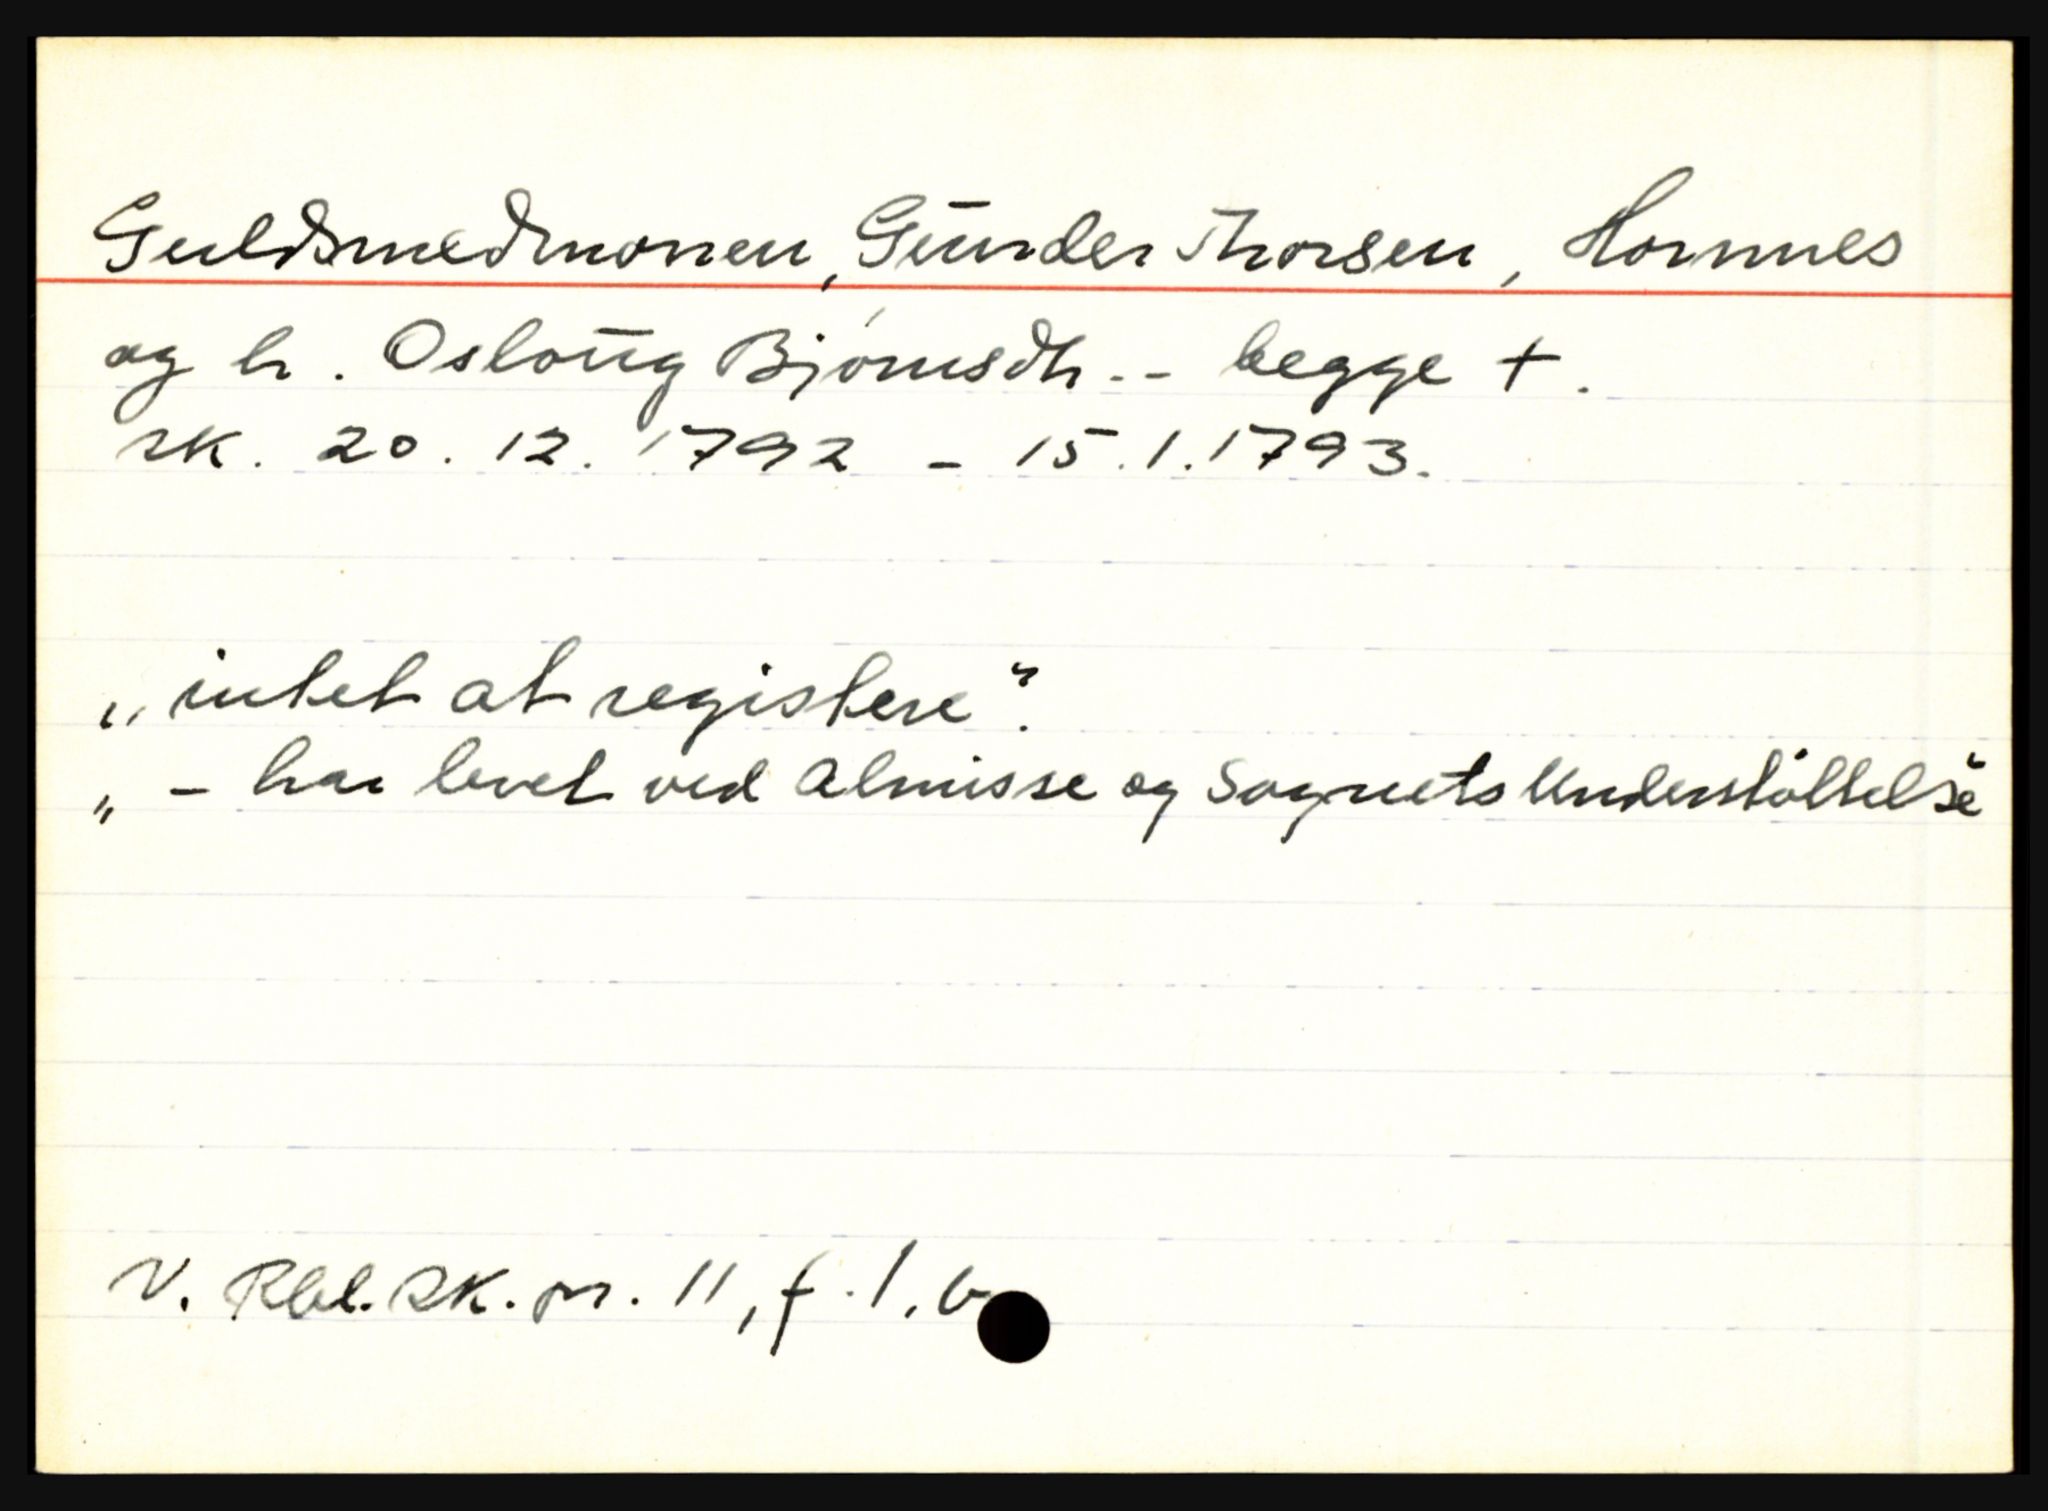 Guldsmedmonen, Gunder Thorsen, Hornnes
og h. Osloug Bjørnsdtr. - begge +.
sk. 20. 12. 1792 - 15.1.1793.
„intet at registere".
„ - har levet ved Almisse og Sognets Understøttelse"
V. Rbl. SK. nr. 11, f. 1, b